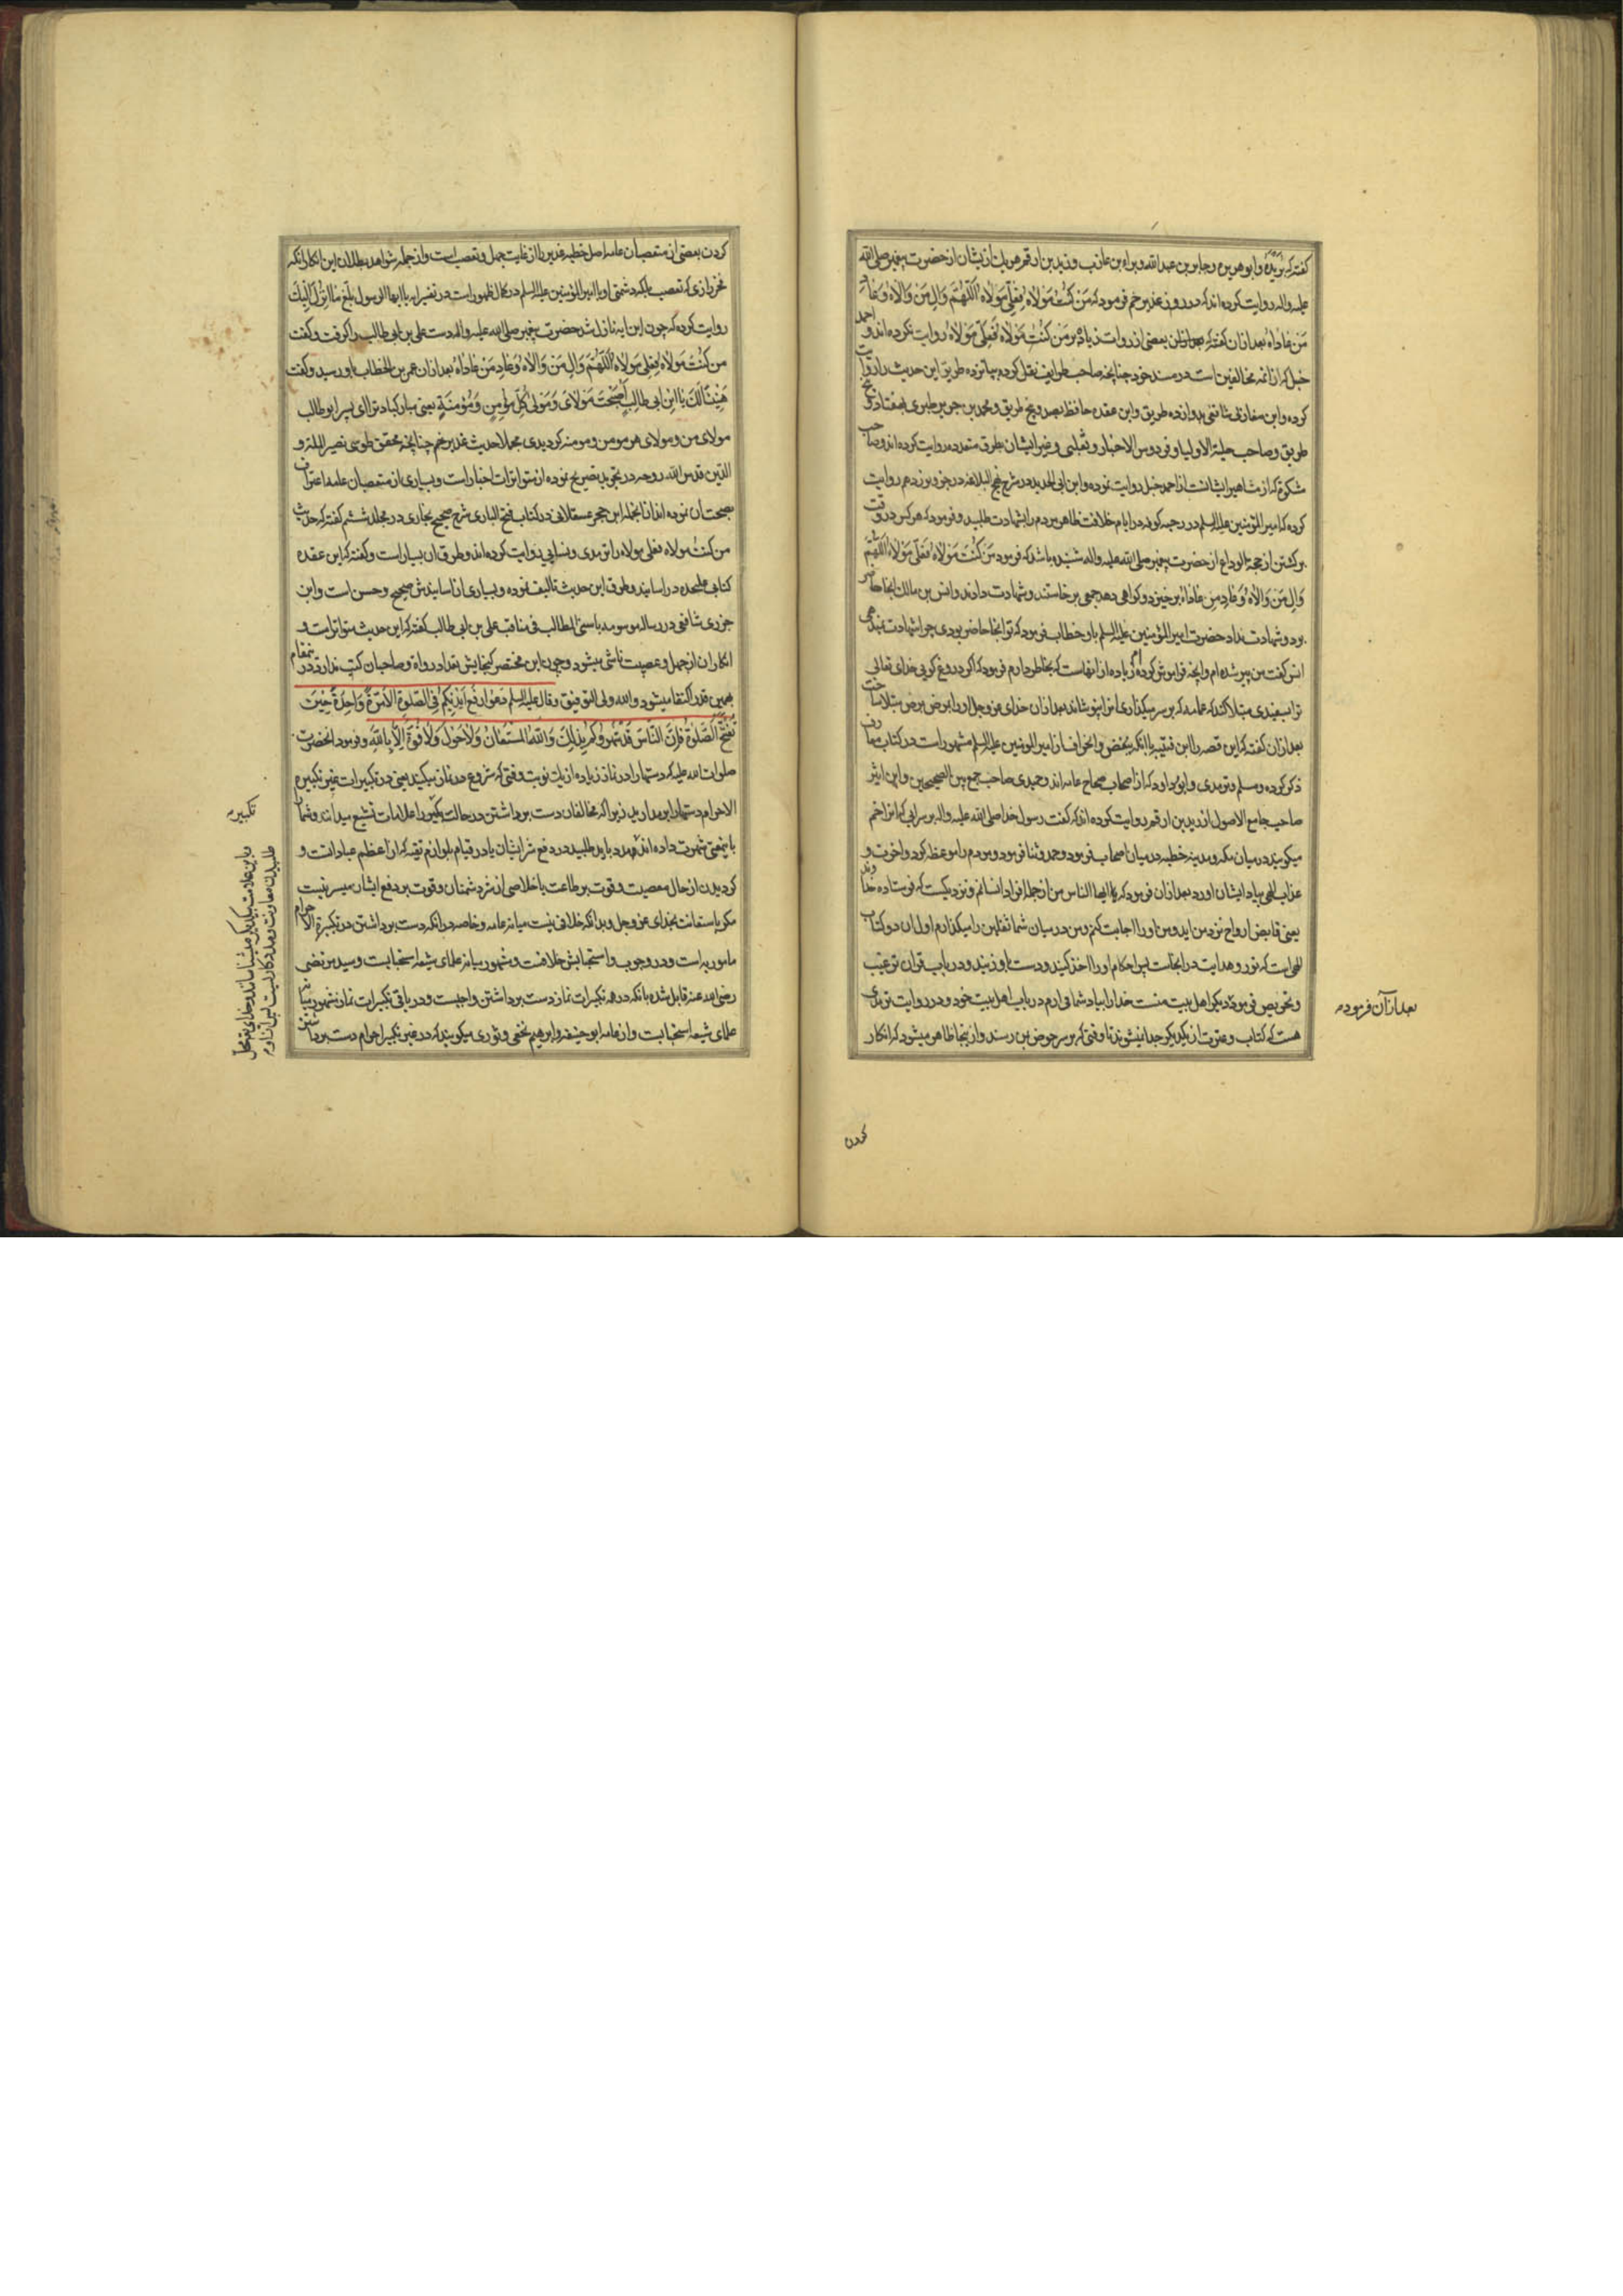 گفته که بریده و ابو هریره و جابر بن عبدالله و براء بن عازب و زید بن ارقم هر یک از یشان از حضرت پیغمبر صلی الله
علیه واله روایت کرده اند که در روز غدیر خم فرمود که مَن کُنتُ مَولاهُ فَعَلِیٌّ مَولاهُ اَللّهُمَّ وَالِ مَن وَالاهُ وَ عَادِ
مَن عَاداهُ بعد ازان گفته که بعضی از روات زیاده بر مَن کُنتُ مَولاهُ فَعَلِیٌّ مَولاهُ روایت نکرده اند و احمد
حنبل که از ائمه مخالفین است در مسند خود چنانچه صاحب طرایف نقل کرده بپانزده طریق این حدیث را روایت
کرده و ابن مغازلی شافعی بدوازده طریق و ابن عقده حافظ بصد و پنج طریق و محمد بن جریر طبری بهفتاد و پنج
طریق و صاحب حلیة الاولیا و فردوس الاخبار و ثعلبی و غیر ایشان بطرق متعدده روایت کرده اند و صاحب
مشکوة که از مشاهیر ایشانست از احمد حنبل روایت نموده و ابن ابی الحدید در شرح نهج البلاغه در جزو نوزدهم روایت
کرده که امیر المؤمنین علیه السلم در رحبه کوفه در ایام خلافت ظاهر مردم را بشهادت طلبید و فرمود که هر کس در وقت
برگشتن از حجة الوداع از حضرت پیغمبر صلی الله علیه واله شنیده باشد که فرمود مَن کُنتُ مَولاهُ فَعَلِیٌّ مَولاهُ اَللّهُمَّ
وَالِ مَن وَالاهُ وَ عَادِ مَن عَاداهُ برخیزد و گواهی دهد جمعی برخاستند و شهادت دادند و انس بن مالک انجا حاضر
بود و شهادت نداد حضرت امیر المؤمنین علیه السلم باو خطاب فرمود که تو انجا حاضر بودی چرا شهادت نمیدهی
انس گفت من پیر شده ام و انچه فراموش کرده ام زیاده از انهاست که بخاطر دارم فرمود که اگر دروغ گویی خدای تعالی
ترا بسفیدی مبتلا کند که عمامه که بر سر میگذاری انرا نپوشاند بعد ازان خدای عز و جل او را ببرص مبتلا ساخت
بعد ازان گفته که این قصه را ابن قتیبه با انکه ببغض و انحراف از امیر المؤمنین علیه السلم مشهور است در کتاب معارف
ذکر کرده و مسلم و ترمدی و ابو داود که از اصحاب صحاح عامه اند و حمیدی صاحب جمع بین الصحیحین و ابن اثیر
صاحب جامع الاصول از زید بن ارقم روایت کرده اند که گفت رسول خدا صلی الله علیه واله بر سر ابی که انرا خم
میگویند در میان مکه و مدینه خطبه در میان اصحاب فرمود و حمد و ثنا فرمود و مردم را موعظه کرد و اخرت و
عذاب الهی بیاد ایشان اورد بعد ازان فرمود که یا ایها الناس من از جمله افراد انسانم و نزدیکست که فرستاده خداوند
یعنی قابض ارواح نزد من اید و من او را اجابت کنم و من در میان شما ثقلین را میگذارم اول ان دو کتاب
الهی است که نور و هدایت در انجاست پس احکام او را اخذ کنید و دست باو زنید و در باب قران ترغیب
و تحریص فرمود دیگر اهل بیت منست خدا را بیاد شما می ارم در باب اهل بیت خود و در روایت ترمدی
هست که کتاب و عترت از یکدیگر جدا نمیشوند تا وقتی که بر سر حوض بمن رسند و از ینجا ظاهر میشود که انکار
بعد از آن فرموده
کردن
کردن بعضی از متعصبان عامه اصل خطبه غدیر را از غایت جهل و تعصب است و از جمله شواهد بطلان این انکار انکه
فخر رازی که تعصب بلکه دشمنی او با امیر المؤمنین علیه السلم در کمال ظهور است در تفسیر ایه یا ایها الرسول بلغ ما انزل الیک
روایت کرده که چون این ایه نازل شد حضرت پیغمبر صلی الله علیه واله دست علی بن ابی طالب را گرفت و گفت
من کُنتُ مَولاهُ فَعَلِیٌّ مَولاهُ اَللّهُمَّ وَالِ مَن وَالاهُ وَعَادِ مَن عَاداهُ بعد ازان عمر بن الخطاب باو رسید و گفت
هَنِیئًا لَکَ یَا ابنَ اَبی طالِبٍ اَصبَحتَ مَولایَ وَ مَولی کُلِّ مُؤمِنٍ وَ مُؤمِنَةٍ یعنی مبارکباد ترا ای پسر ابو طالب
مولای من و مولای هر مومن و مومنه گردیدی مجملا حدیث غدیر خم چنانچه محقق طوسی نصیر الملة و
الدین قدس الله روحه در تجرید تصریح نموده از متواترات اخبار است و بسیاری از متعصبان عامه اعتراف
بصحت ان نموده اند از انجمله ابن حجر عسقلانی در کتاب فتح الباری شرح صحیح بخاری در مجلد ششم گفته که حدیث
من کنت مولاه فعلی مولاه را ترمدی و نسایی روایت کرده اند و طرق ان بسیار است و گفته که ابن عقده
کتابی علیحده در اسانید و طرق این حدیث تالیف نموده و بسیاری از اسانیدش صحیح و حسن است و ابن
جزری شافعی در رساله موسومه باسنی المطالب فی مناقب علی بن ابی طالب گفته که این حدیث متواتر است و
انکار ان از جهل و عصبیت ناشی میشود و چون این مختصر گنجایش تعداد رواة و صاحبان کتب ندارد در ینمقام
بهمین قدر اکتفا میشود والله ولی التوفیق وقال علیه السلم دَعُوا رَفعَ اَیدِیکُم فِی الصَّلوةِ اِلاّ مَرَّةً وَاحِدَةً حِینَ
تُفتَحُ الصَّلوةُ فَاِنَّ النّاسَ قَد شَهَرُوکُم بِذلِکَ وَاللهُ المُستَعانُ وَلا حَولَ وَلا قُوَّةَ اِلاّ بِاللهِ و فرمود انحضرت
صلوات الله علیه که دستها را در نماز زیاده از یک نوبت وقتی که شروع در نماز میکنید یعنی در تکبیرات غیر تکبیرة
الاحرام دستها را بر مدارید زیرا که مخالفان دست برداشتن در حالت تکبیر را علامات تشیع میدانند و شما را
باینمعنی شهرت داده اند و مدد باید طلبید در دفع شر ایشان یا در قیام بلوازم تقیه که از اعظم عباداتست و
گردیدن از حال معصیت و قوت بر طاعت یا خلاصی از شر دشمنان و قوت بر دفع ایشان میسر نیست
مگر باستعانت بخدای عز و جل و بدانکه خلافی نیست میانه عامه و خاصه در انکه دست برداشتن در تکبیرة الاحرام
مامور به است و در وجوب و استحبابش خلافست و مشهور میانه علمای شیعه استحبابست و سید مرتضی
رضی الله عنه قایل شده بانکه در همه تکبیرات نماز دست برداشتن واجبست و در باقی تکبیرات نماز مشهور میانه
علمای شیعه استحبابست و از عامه ابو حنیفه و ابرهیم نخعی و ثوری میگویند که در غیر تکبیر احرام دست برداشتن
تکبیرة